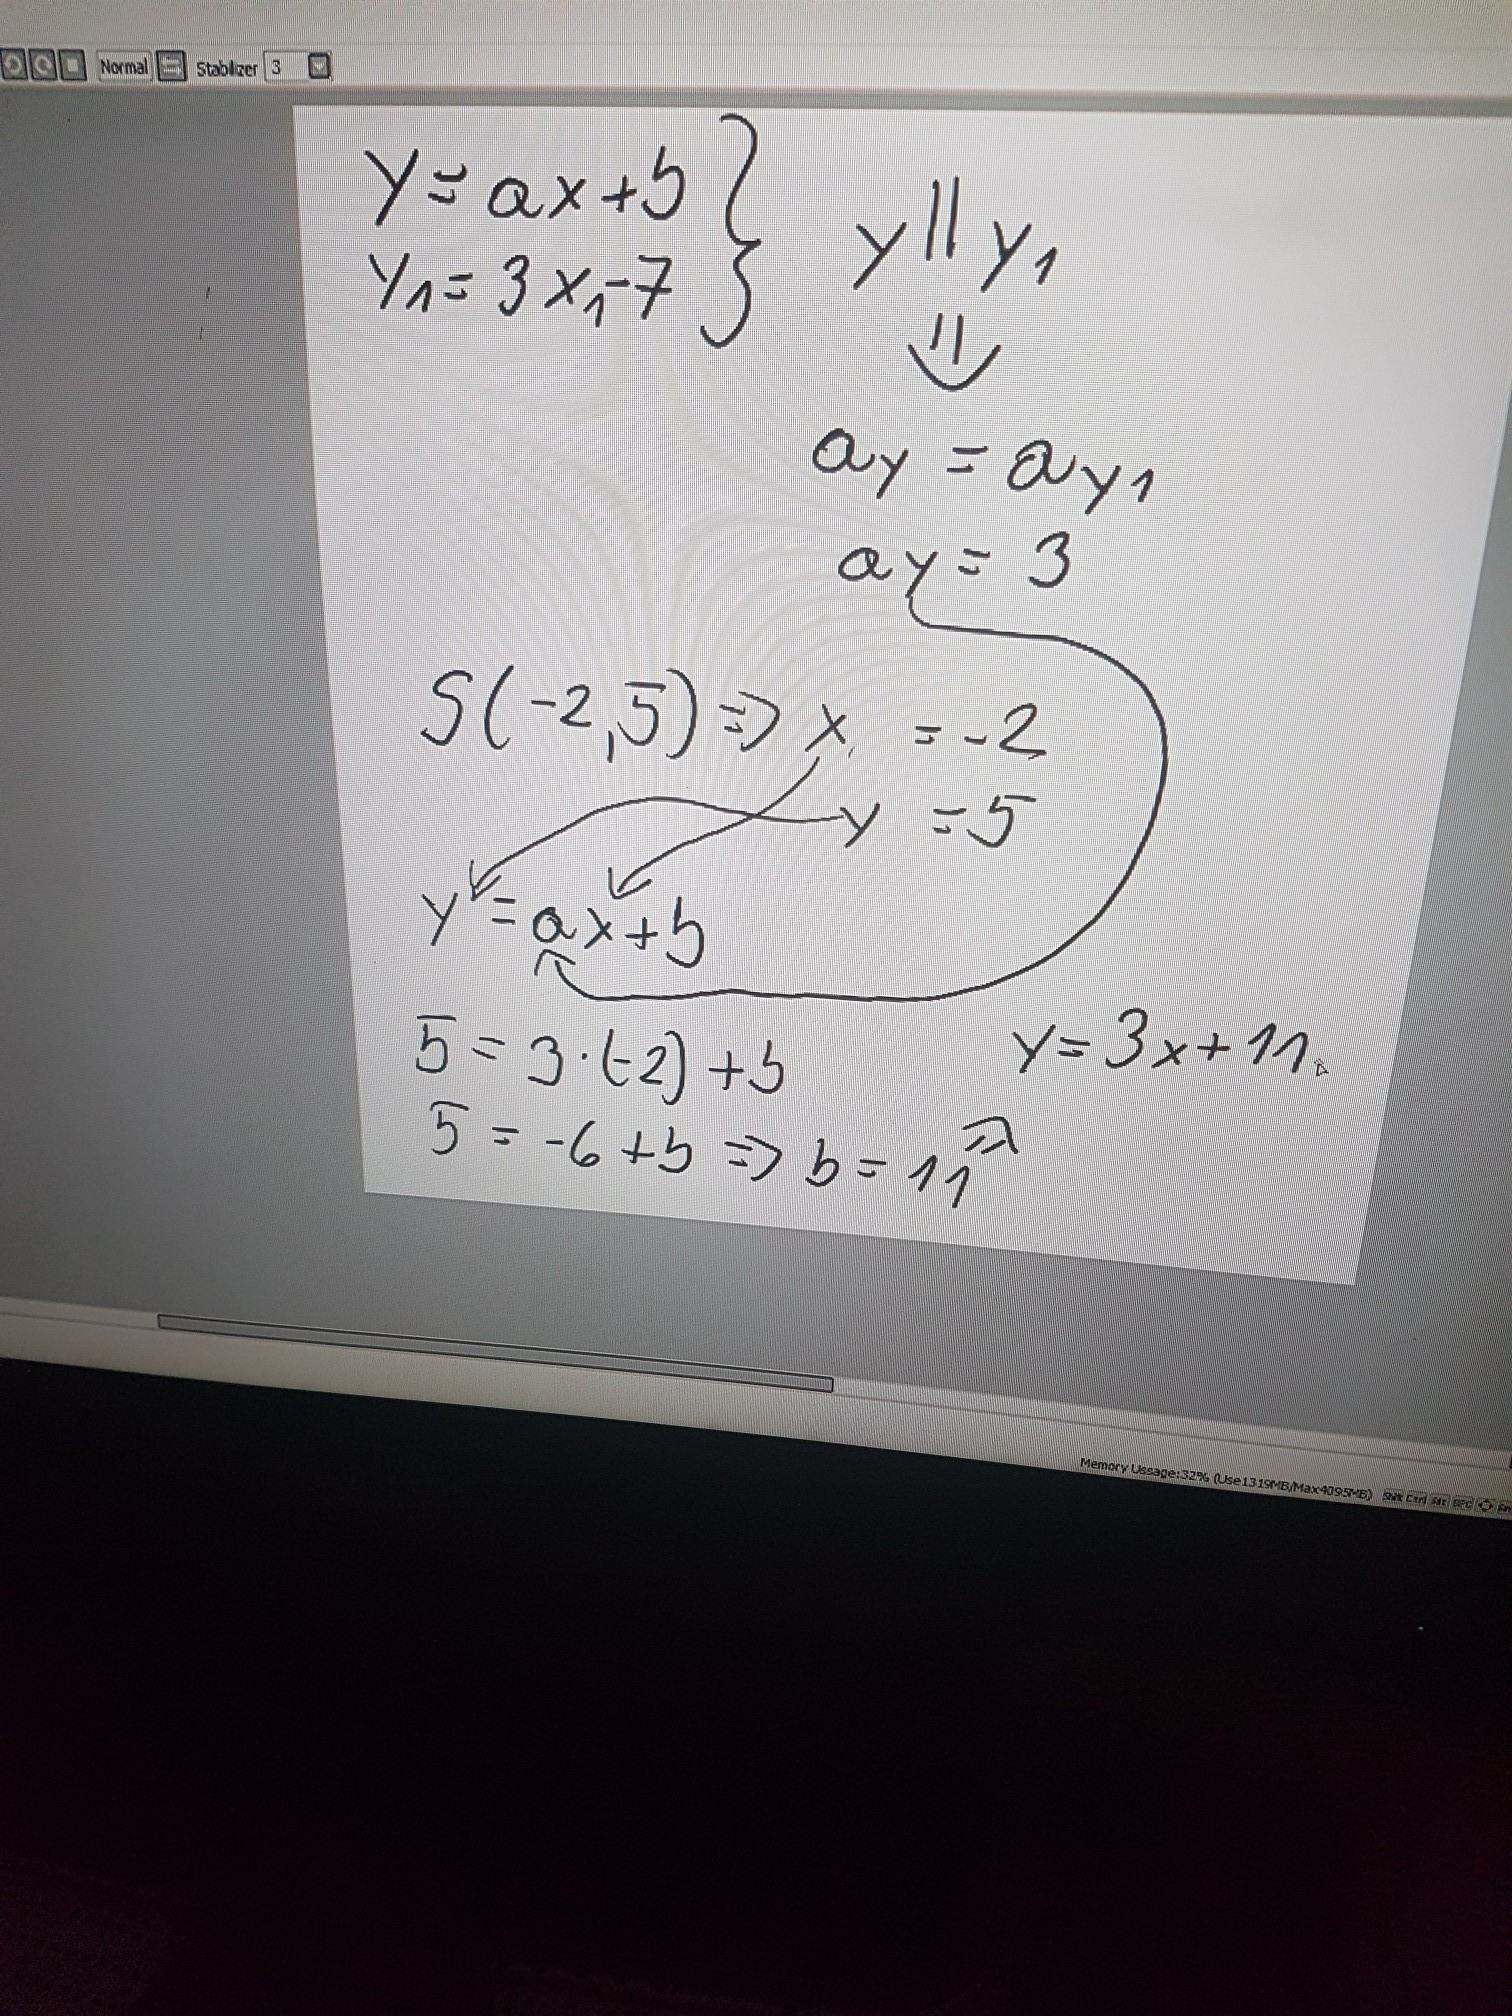 Normal Stabilizer 3
y = ax + b
y₁ = 3x₁ - 7
y || y₁
⇓
ay = ay₁
ay = 3
S(-2,5) ⇒ x = -2
y = 5
y = ax + b
5 = 3·(-2) + b
5 = -6 + b ⇒ b = 11 ⇒
y = 3x + 11
Memory Ussage:32% (Use1319MB/Max4095MB) Shift Ctrl Alt SPC